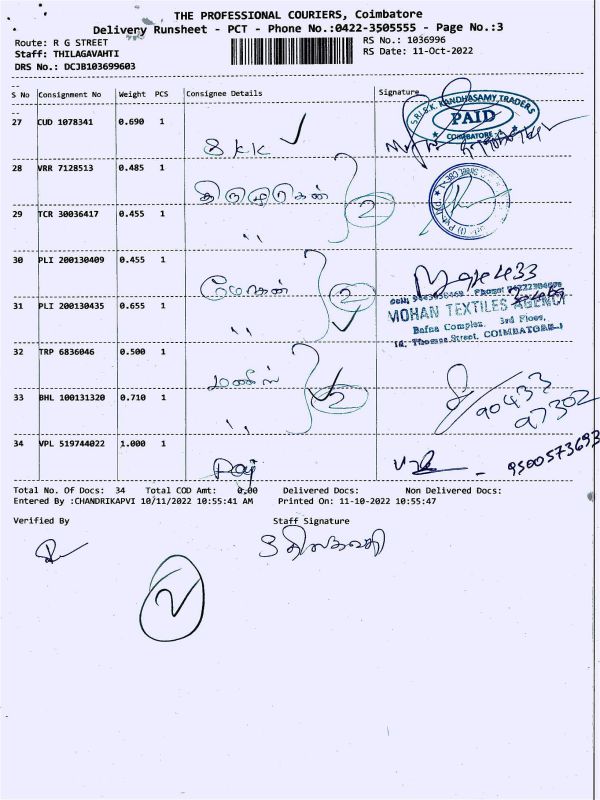 THE PROFESSIONAL COURIERS, Coimbatore
Delivery Runsheet - PCT - Phone No.:0422-3505555 - Page No.:3
Route: R G STREET
RS No.: 1036996
Staff: THILAGAVAHTI
RS Date: 11-Oct-2022
DRS No.: DCJB103699603
S No Consignment No Weight PCS Consignee Details Signature
27 CUD 1078341 0.690 1
S K K
SRI S.K. KANDHASAMY TRADERS
PAID
COIMBATORE
28 VRR 7128513 0.485 1
திருமுருகன்
2
29 TCR 30036417 0.455 1
,,
30 PLI 200130409 0.455 1
மோகன்
2
31 PLI 200130435 0.655 1
,,
MOHAN TEXTILES AGENCY
Bafna Complex, 3rd Floor,
Thomas Street, COIMBATORE-1
32 TRP 6836046 0.500 1
2
33 BHL 100131320 0.710 1
,,
90433
97302
34 VPL 519744022 1.000 1
- 9500573693
Total No. Of Docs: 34 Total COD Amt: 0.00 Delivered Docs: Non Delivered Docs:
Entered By :CHANDRIKAPVI 10/11/2022 10:55:41 AM Printed On: 11-10-2022 10:55:47
Verified By Staff Signature
2